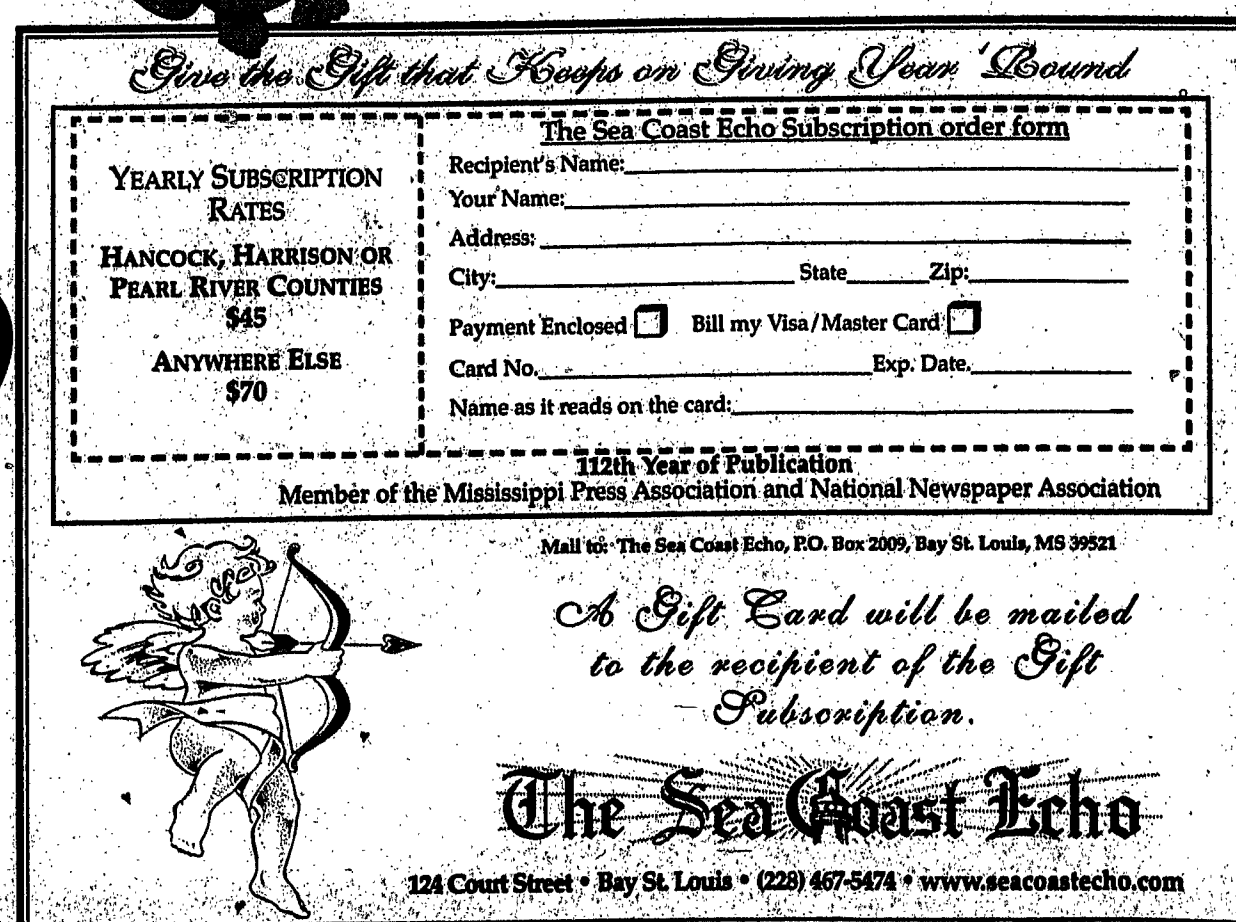 Give the Gift that Keeps on Giving Year 'Round
YEARLY SUBSCRIPTION
RATES
HANCOCK, HARRISON OR
PEARL RIVER COUNTIES
$45
ANYWHERE ELSE
$70
The Sea Coast Echo Subscription order form
Recipient's Name:
Your Name:
Address:
City: State Zip:
Payment Enclosed Bill my Visa/Master Card
Card No. Exp. Date.
Name as it reads on the card:
112th Year of Publication
Member of the Mississippi Press Association and National Newspaper Association
Mail to: The Sea Coast Echo, P.O. Box 2009, Bay St. Louis, MS 39521
A Gift Card will be mailed
to the recipient of the Gift
Subscription.
The Sea Coast Echo
124 Court Street • Bay St. Louis • (228) 467-5474 • www.seacoastecho.com